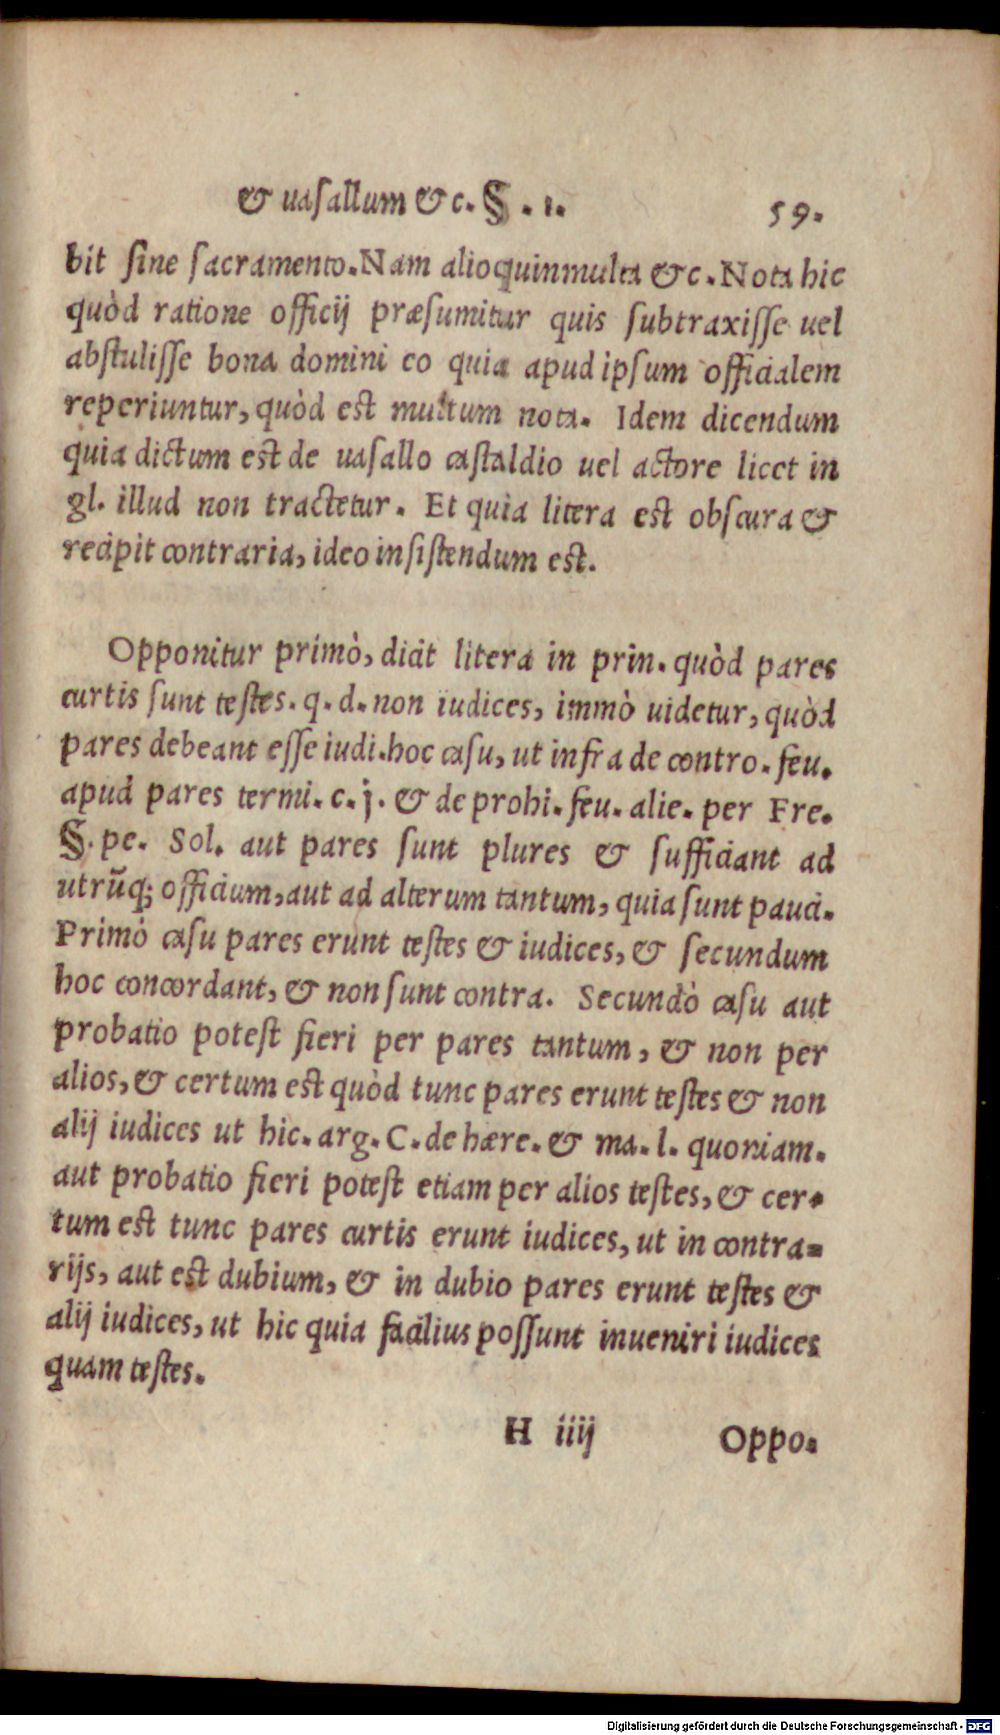 & uasallum &c. §. 1. 59.
bit sine sacramento. Nam alioquin multa &c. Nota hic
quòd ratione officij præsumitur quis subtraxisse uel
abstulisse bona domini eo quia apud ipsum officialem
reperiuntur, quòd est multum nota. Idem dicendum
quia dictum est de uasallo castaldio uel actore licet in
gl. illud non tractetur. Et quia litera est obscura &
recipit contraria, ideo insistendum est.
Opponitur primò, dicit litera in prin. quòd pares
curtis sunt testes. q. d. non iudices, immò uidetur, quòd
pares debeant esse iudi. hoc casu, ut infra de contro. feu.
apud pares termi. c. j. & de prohi. feu. alie. per Fre.
§. pe. Sol. aut pares sunt plures & sufficiant ad
utrūq; officium, aut ad alterum tantum, quia sunt pauci.
Primò casu pares erunt testes & iudices, & secundum
hoc concordant, & non sunt contra. Secundò casu aut
probatio potest fieri per pares tantum, & non per
alios, & certum est quòd tunc pares erunt testes & non
alij iudices ut hic. arg. C. de hære. & ma. l. quoniam.
aut probatio fieri potest etiam per alios testes, & cer-
tum est tunc pares curtis erunt iudices, ut in contra-
rijs, aut est dubium, & in dubio pares erunt testes &
alij iudices, ut hic quia facilius possunt inueniri iudices
quam testes.
H iiij Oppo-
Digitalisierung gefördert durch die Deutsche Forschungsgemeinschaft - DFG